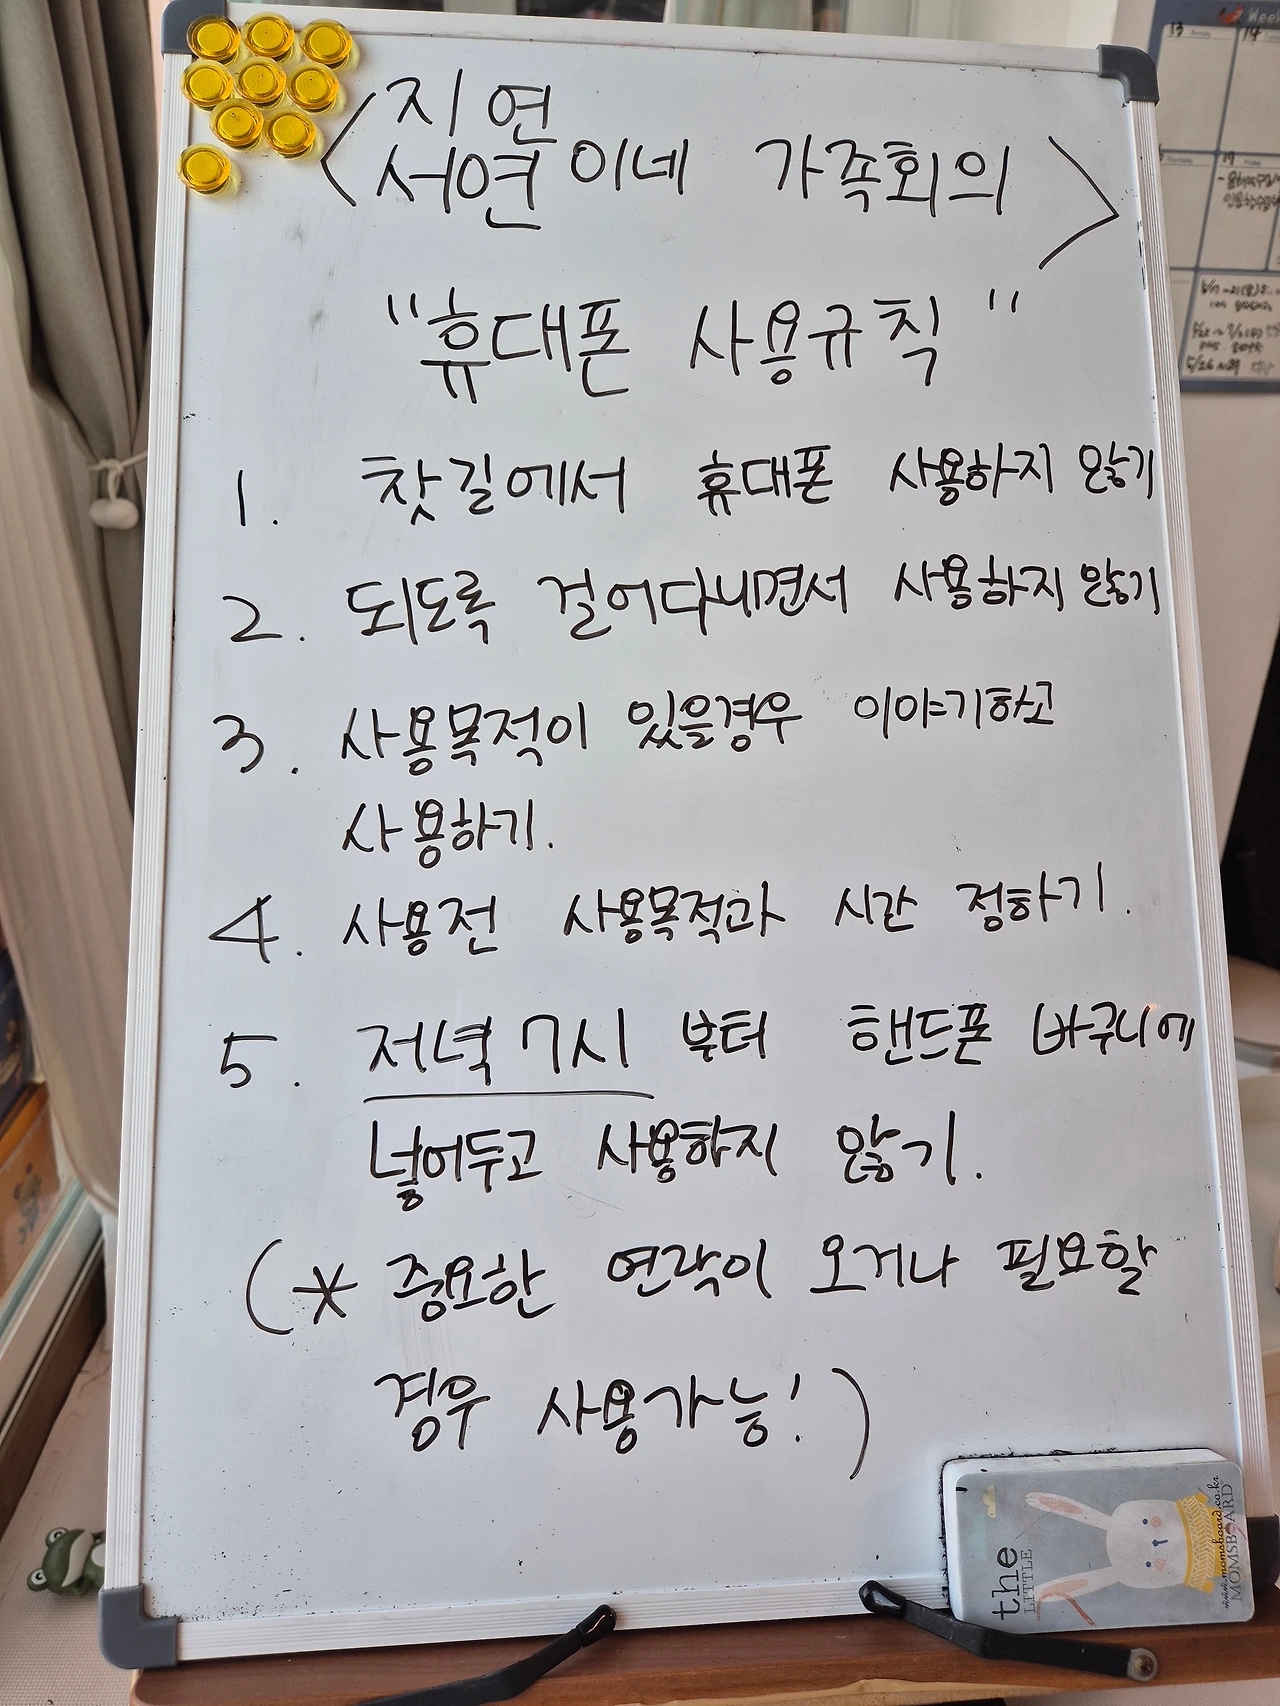 <지연
서연이네 가족회의>
"휴대폰 사용규칙"
1. 찻길에서 휴대폰 사용하지 않기
2. 되도록 걸어다니면서 사용하지 않기
3. 사용목적이 있을경우 이야기하고
사용하기.
4. 사용전 사용목적과 시간 정하기.
5. 저녁 7시 부터 핸드폰 바구니에
넣어두고 사용하지 않기.
(* 중요한 연락이 오거나 필요할
경우 사용가능!)
the
LITTLE
www.momsboard.co.kr
MOMSBOARD
Week
13
14